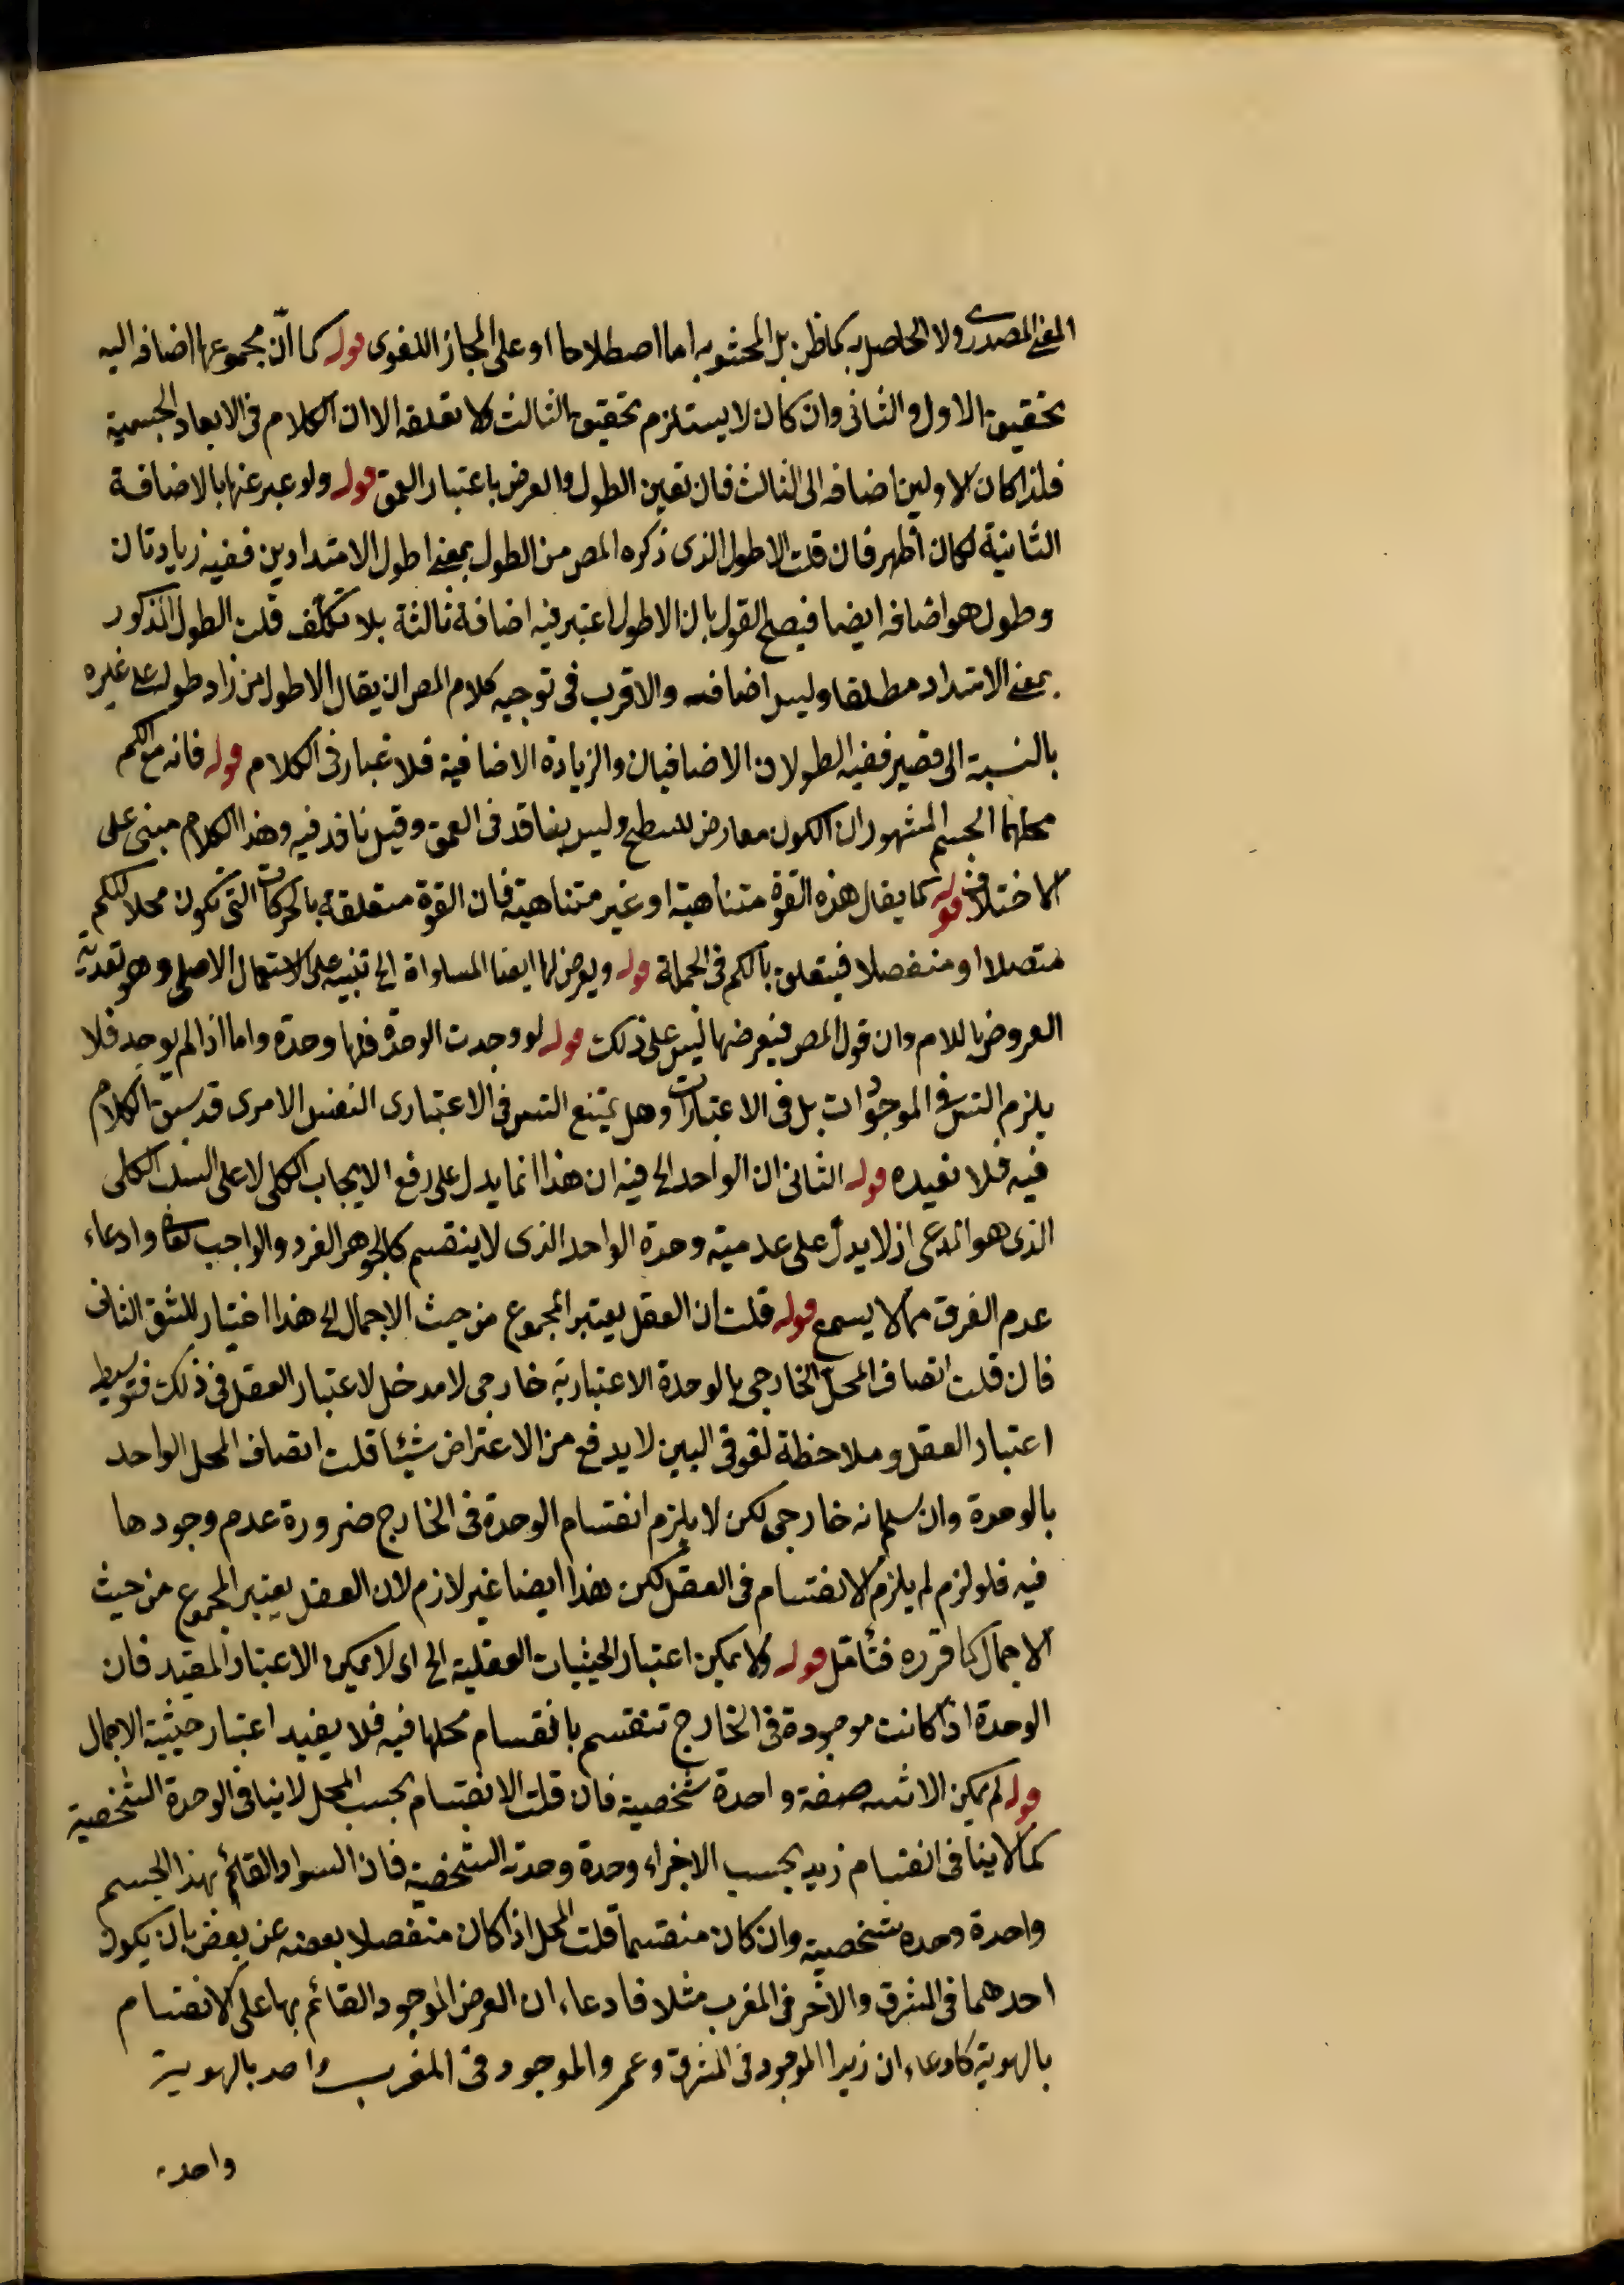 المعنى المصدرى ولا الحاصل به كما ظن بل المحشو به اما اصطلاحا او على المجاز اللغوى قوله كما ان مجموعها اضافه اليه
تحقيق الاول والثانى وان كان لا يستلزم تحقيق الثالث ولا تعلقه الا ان الكلام فى الابعاد الجسمية
فلذا كان للاولين اضافه الى الثالث فان تعين الطول والعرض باعتبار العمق قوله ولو عبر عنها بالاضافة
الثانية لكان اظهر فان قلت الاطول الذى ذكره المص من الطول بمعنى اطول الامتدادين ففيه زيادتان
وطول هو اضافه ايضا فيصح القول بان الاطول اعتبر فيه اضافة ثالثة بلا تكلف قلت الطول المذكور
بمعنى الامتداد مطلقا وليس اضافه والاقرب فى توجيه كلام المص ان يقال الاطول من زاد طوله على غيره
بالنسبة الى قصير ففيه الطولان الاضافيان والزيادة الاضافية فلا غبار فى الكلام قوله فانه مع الكم
محلهما الجسم المشهور ان الكون معارض للسطح وليس بنافذ فى العمق وقيل نافذ فيه وهذا الكلام مبنى على
الاختلاف قوله كما يقال هذه القوة متناهية او غير متناهية فان القوة متعلقة بالحركات التى تكون محلا للكم
متصلا او منفصلا فيتعلق بالكم فى الجملة قوله ويعرض لها ايضا المساواة الخ تنبيه على الاستعمال الاصلى وهو تعدية
العروض باللام وان قول المص فيعرضها ليس على ذلك قوله لو وجدت الوحدة فلها وحدة واما اذا لم يوجد فلا
يلزم التس فى الموجودات بل فى الاعتباريات وهل يمتنع التس فى الاعتبارى النفس الامرى قد سبق الكلام
فيه فلا نعيده قوله الثانى ان الواحد الخ فيه ان هذا انما يدل على رفع الايجاب الكلى لا على السلب الكلى
الذى هو المدعى اذ لا يدل على عدمية وحدة الواحد الذى لا ينقسم كالجوهر الفرد والواجب تعالى وادعاء
عدم الفرق مما لا يسمع قوله قلت ان العقل يعتبر المجموع من حيث الاجمال الخ هذا اختيار للشق الثانى
فان قلت اتصاف المحل الخارجى بالوحدة الاعتبارية خارجى لا مدخل لاعتبار العقل فى ذلك فتوسيط
اعتبار العقل وملاحظة لغو فى البين لا يدفع من الاعتراض شيئا قلت اتصاف المحل الواحد
بالوحدة وان سلم انه خارجى لكن لا يلزم انقسام الوحدة فى الخارج ضرورة عدم وجودها
فيه فلو لزم لم يلزم الانقسام فى العقل لكن هذا ايضا غير لازم لان العقل يعتبر المجموع من حيث
الاجمال كما قرره فتأمل قوله ولا يمكن اعتبار الحيثيات العقلية الخ اى لا يمكن الاعتبار المقيد فان
الوحدة اذا كانت موجودة فى الخارج تنقسم بانقسام محلها فيه فلا يفيد اعتبار حيثية الاجمال
قوله لم يمكن الاثنينية صفة واحدة شخصية فان قلت الانقسام بحسب المحل لا ينافى الوحدة الشخصية
كما لا ينافى انقسام زيد بحسب الاجزاء وحدة وحدته الشخصية فان السواد القائم بهذا الجسم
واحدة وحدة شخصية وان كان منقسما قلت المحل اذا كان منفصلا بعضه عن بعض بان يكون
احدهما فى المشرق والاخر فى المغرب مثلا فادعاء ان العرض الموجود القائم بها على الانقسام
بالهوية كادعاء ان زيدا الموجود فى المشرق وعمرو الموجود فى المغرب واحد بالهوية
واحدة